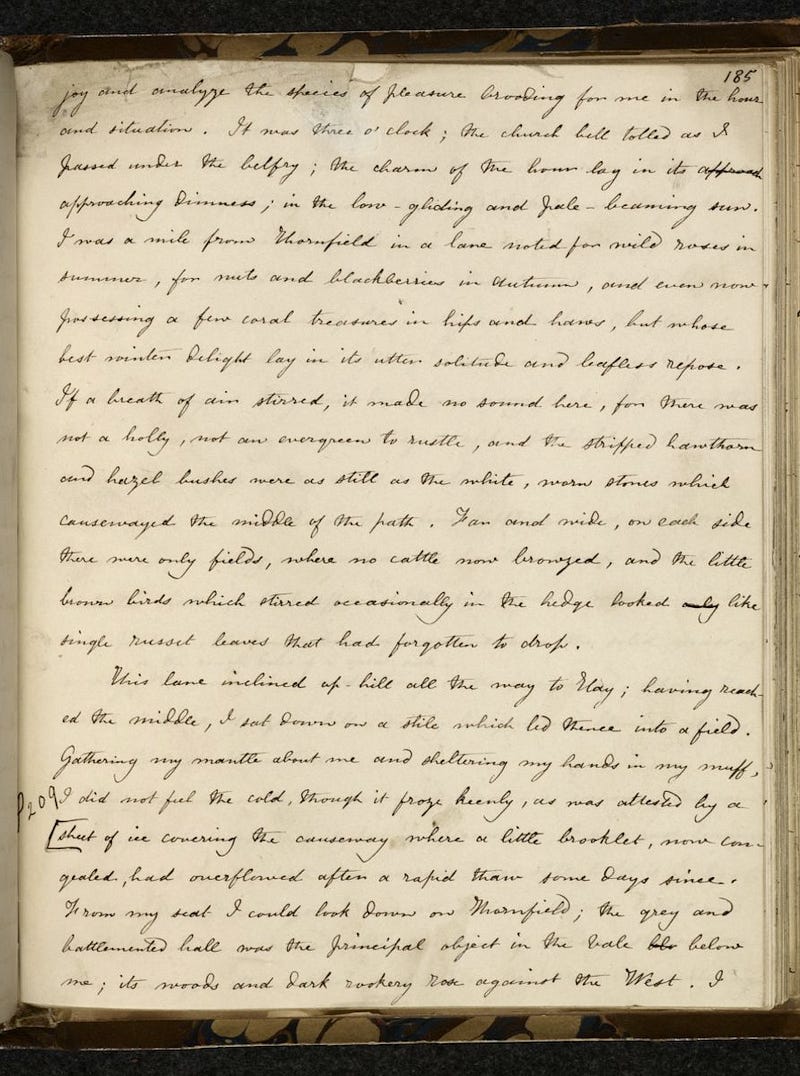 185
joy and analyze the species of pleasure brooding for me in the hour
and situation. It was three o' clock; the church bell tolled as I
passed under the belfry; the charm of the hour lay in its approach
approaching dimness; in the low-gliding and pale-beaming sun.
I was a mile from Thornfield in a lane noted for wild roses in
summer, for nuts and blackberries in Autumn, and even now
possessing a few coral treasures in hips and haws, but whose
best winter delight lay in its utter solitude and leafless repose.
If a breath of air stirred, it made no sound here, for there was
not a holly, not an evergreen to rustle, and the stripped hawthorn
and hazel bushes were as still as the white, worn stones which
causewayed the middle of the path. Far and wide, on each side
there were only fields, where no cattle now browzed, and the little
brown birds which stirred occasionally in the hedge looked only like
single russet leaves that had forgotten to drop.
This lane inclined up-hill all the way to Hay; having reach-
ed the middle, I sat down on a stile which led thence into a field.
Gathering my mantle about me and sheltering my hands in my muff,
P 209 I did not feel the cold, though it froze keenly, as was attested by a
[sheet of ice covering the causeway where a little brooklet, now con-
gealed, had overflowed after a rapid thaw some days since.
From my seat I could look down on Thornfield; the grey and
battlemented hall was the principal object in the vale blo below
me; its woods and dark rookery rose against the West. I